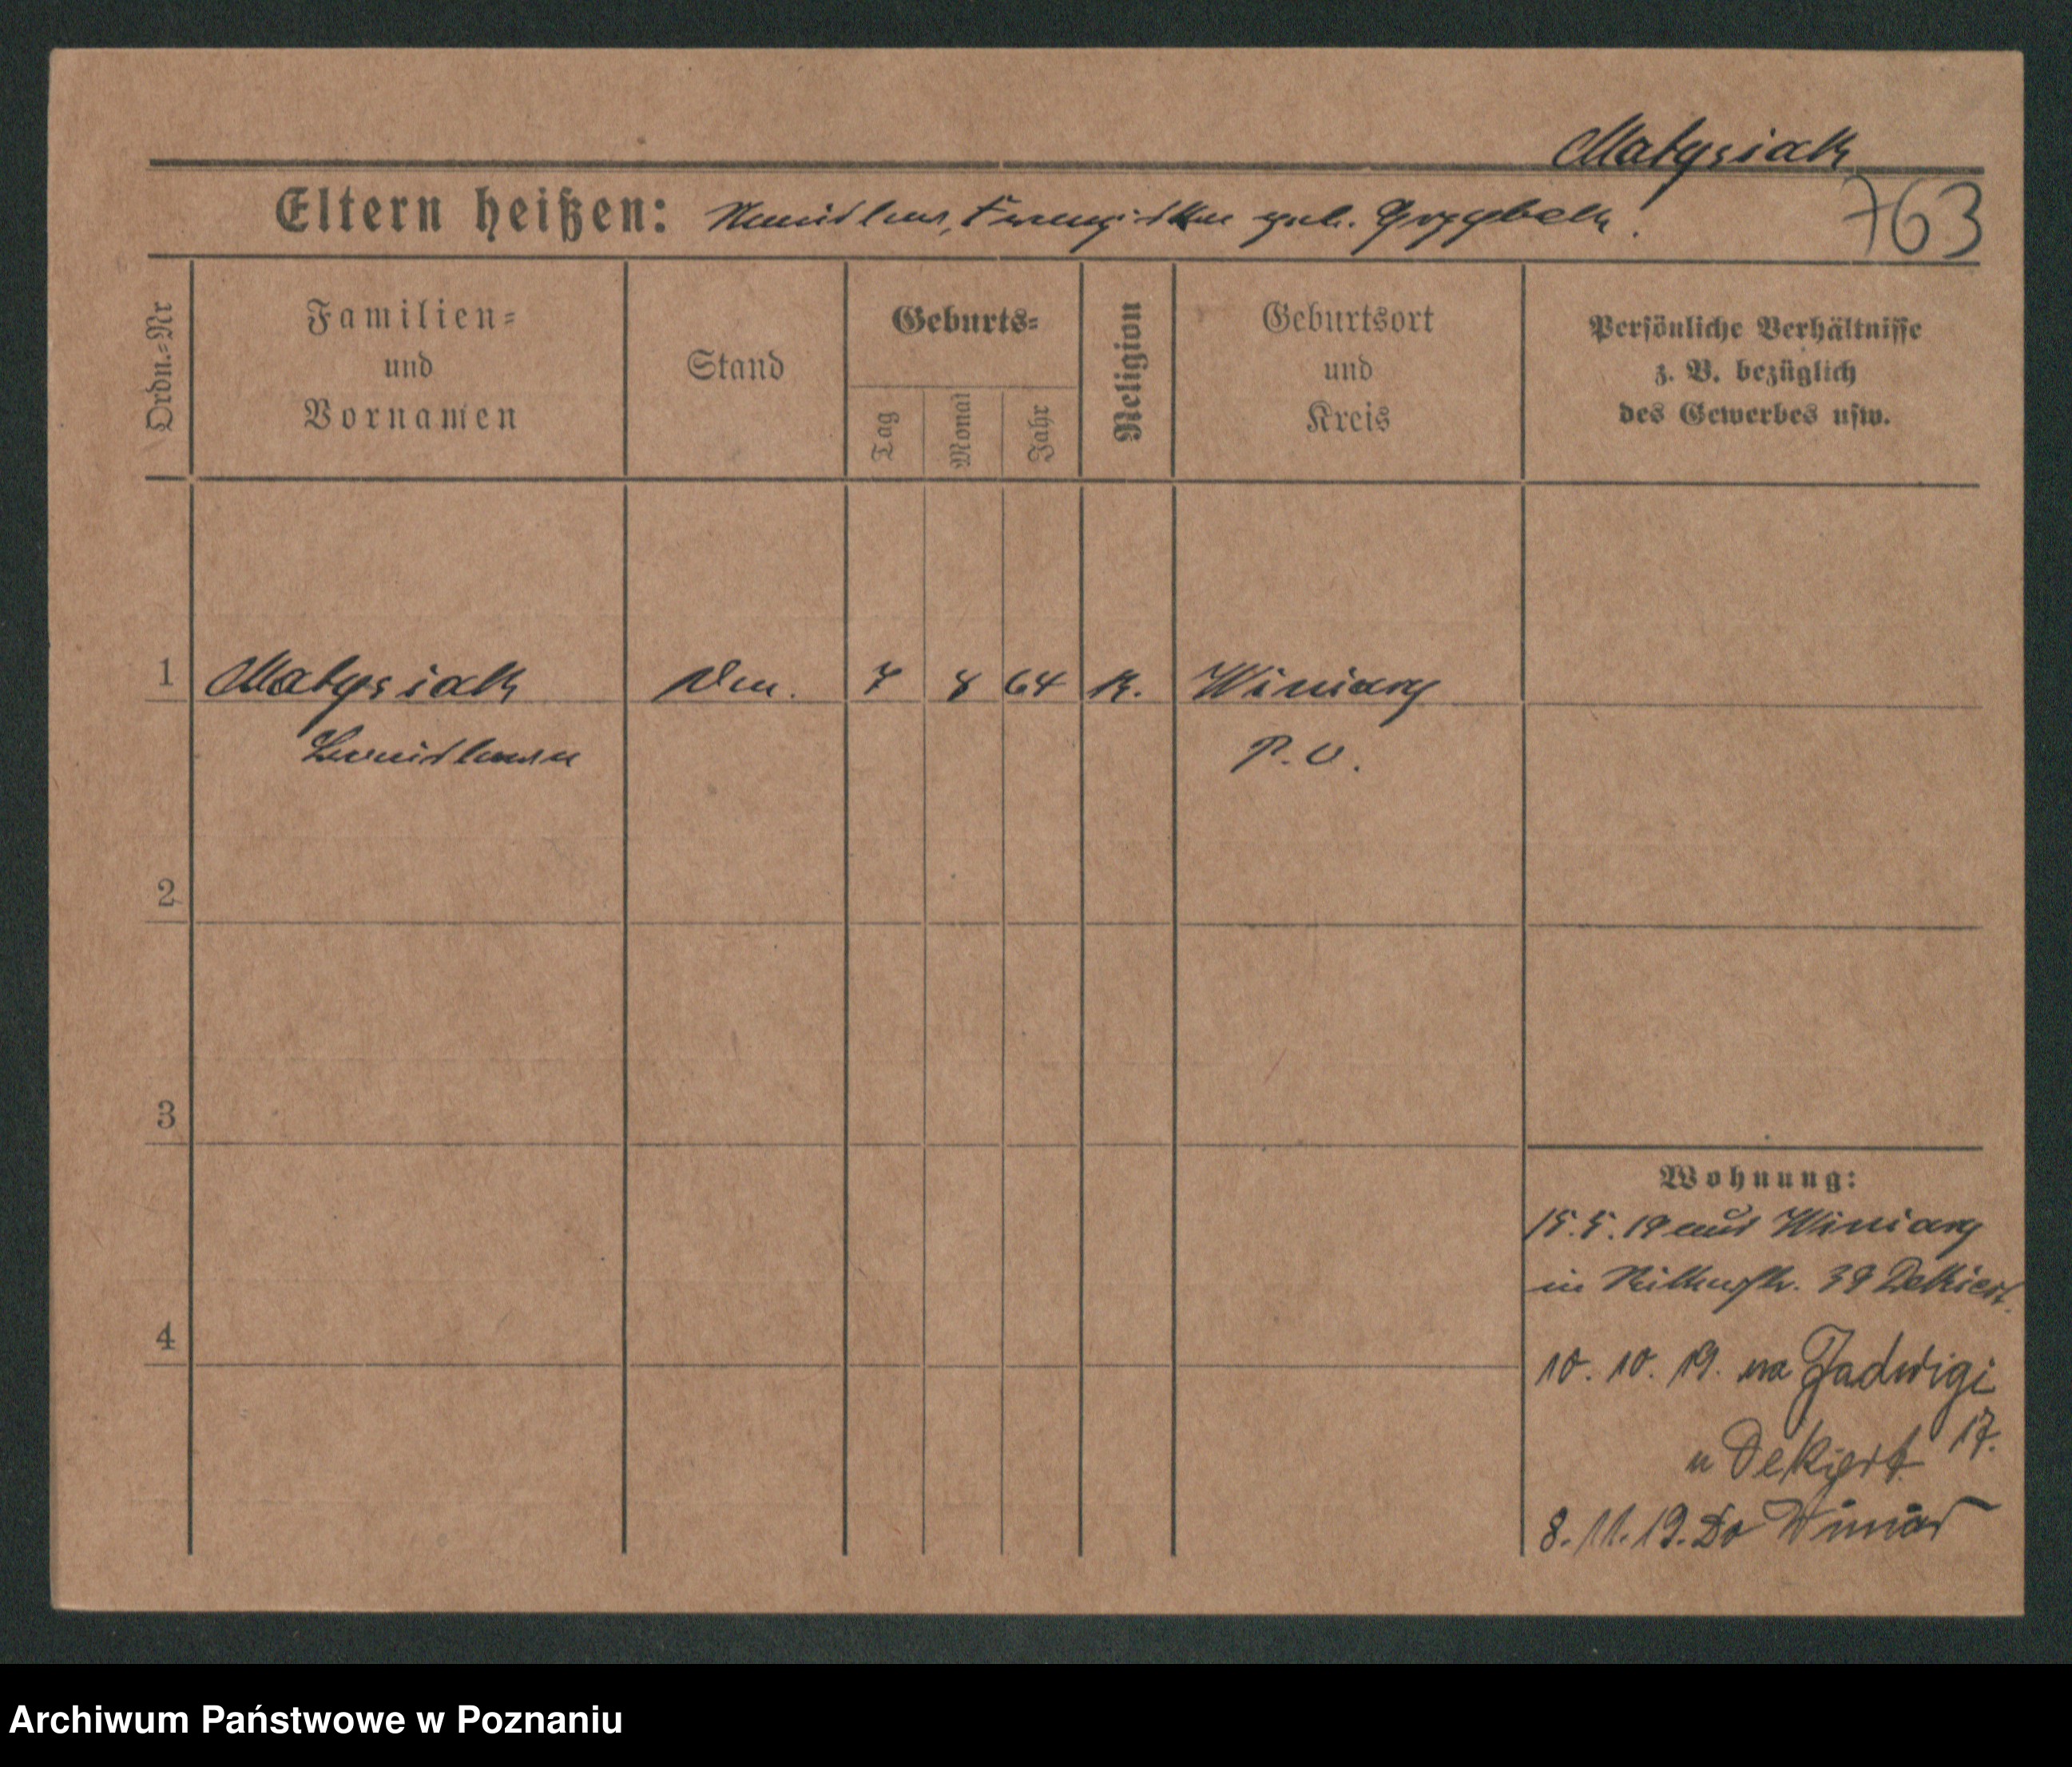 Matysiak
763
Eltern heißen: Stanislaus, Franziska geb. Grzybek.
Ordn.=Nr
Familien=
und
Vornamen
Stand
Geburts=
Tag
Monat
Jahr
Religion
Geburtsort
und
Kreis
Persönliche Verhältnisse
z. B. bezüglich
des Gewerbes usw.
1 Matysiak 7 8 64 K. Winiary
Stanislawa P. O.
2
3
4
Wohnung:
15.5.19 aus Winiary
in 39 Dekiert.
10. 10. 19. na Jadwigi
17.
u Dekiert
8. 11. 19. Do Winiar
Archiwum Państwowe w Poznaniu